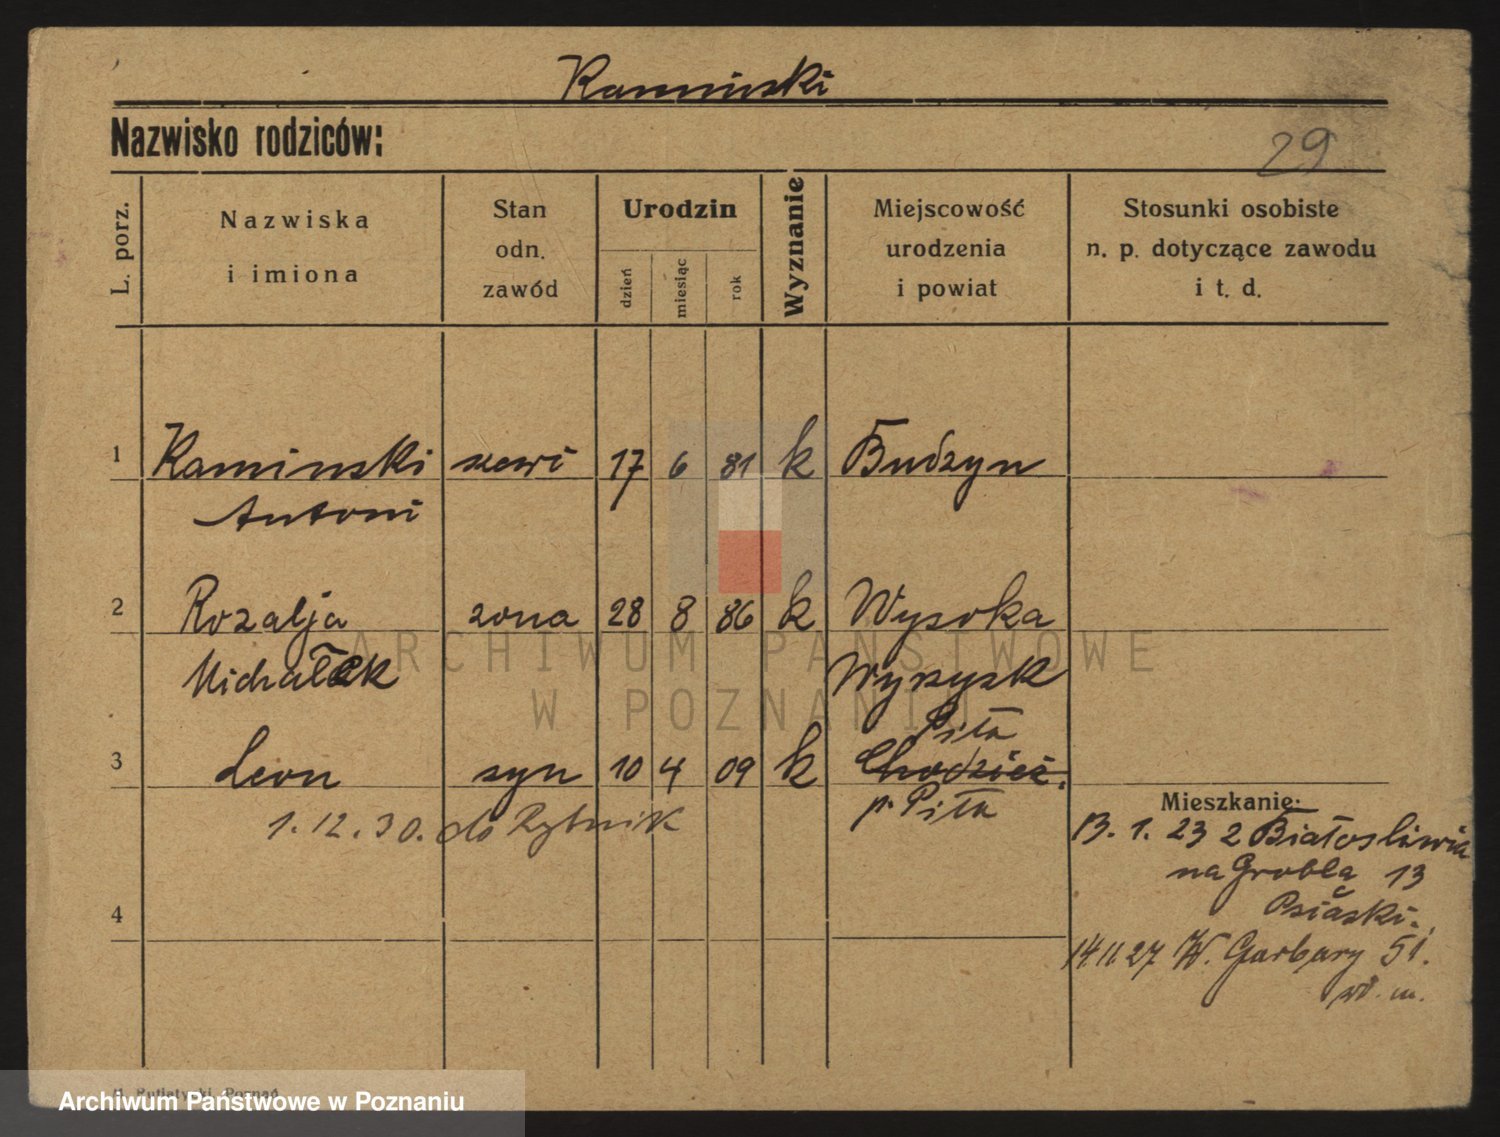 Kaminski
Nazwisko rodziców:
29
L. porz.
Nazwiska
i imiona
Stan
odn.
zawód
Urodzin
dzień
miesiąc
rok
Wyznanie
Miejscowość
urodzenia
i powiat
Stosunki osobiste
n. p. dotyczące zawodu
i t. d.
1 Kaminski 17 6 81 k Budzyn
Antoni
2 Rozalja zona 28 8 86 k Wysoka
Michałek Wyrzysk
Piła
3 Leon syn 10 4 09 k Chodzież.
p. Piła
1.12.30. do Rybnik
Mieszkanie:
13. 1. 23 z Białosliwia
na Grobla 13
14 11 27 W. Garbary 51.
4
ARCHIWUM PAŃSTWOWE
W POZNANIU
Poznań
Archiwum Państwowe w Poznaniu